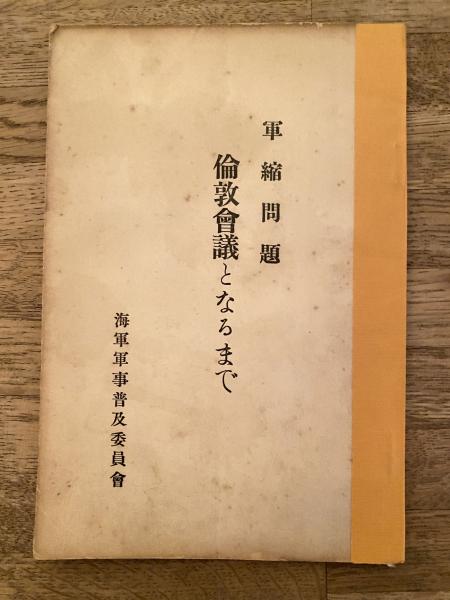 軍縮問題
倫敦會議となるまで
海軍軍事普及委員會